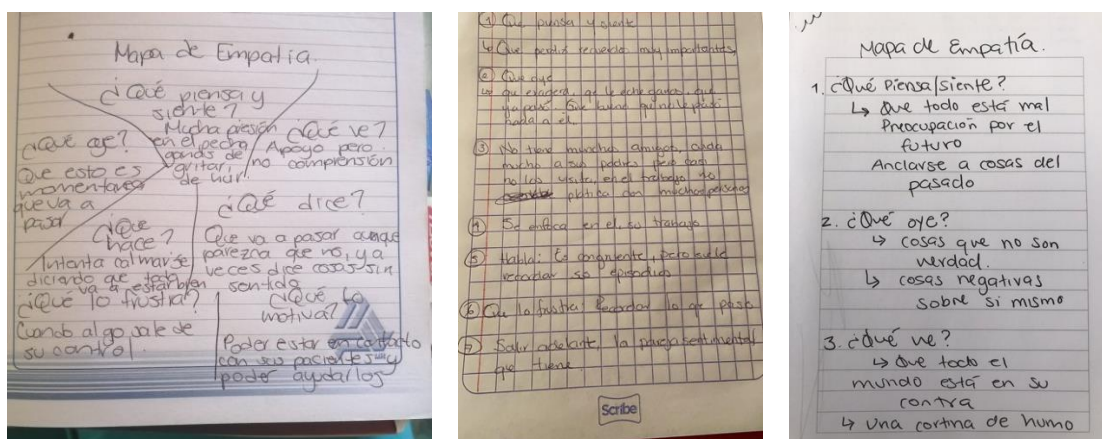 Mapa de Empatia.
¿Qué piensa y
siente?
Mucha presión
en el pecho
ganas de
gritar,
de huir.
¿Qué oye?
Que esto es
momentaneo
que va a
pasar
¿Qué ve?
Apoyo pero
no comprensión
¿Qué
hace?
Intenta calmarse
diciendo que todo
va a estar bien
¿Qué dice?
Que va a pasar aunque
parezca que no, y a
veces dice cosas sin
sentido
¿Qué lo frustra?
Cuando algo sale de
su control.
¿Qué lo
motiva?
Poder estar en contacto
con sus pacientes y
poder ayudarlos
① Que piensa y siente
↳ Que perdió recuerdos muy importantes
② Que oye
↳ qu exagera, qe le eche ganas, que
ya pasó. Que bueno qu no le pasó
nada a él.
③ No tiene munchos amigos,
mucho a sus padres, pero casi
no los visita, en el trabajo no
platica con muchas personas
④ Se enfoca en el su trabajo
⑤ Habla: Es congruente, pero evita
recordar su episodios
⑥ Que lo frustra: Recordar lo qe paso
⑦ Salir adelante, la pareja sentimental
que tiene.
Scribe
Mapa de Empatía.
1. ¿Qué Piensa/siente?
↳ Que todo está mal
Preocupación por el
futuro
Anclarse a cosas del
pasado
2. ¿Qué oye?
↳ cosas que no son
verdad.
↳ cosas negativas
sobre si mismo
3. ¿Qué ve?
↳ Que todo el
mundo está en su
contra
↳ una cortina de humo